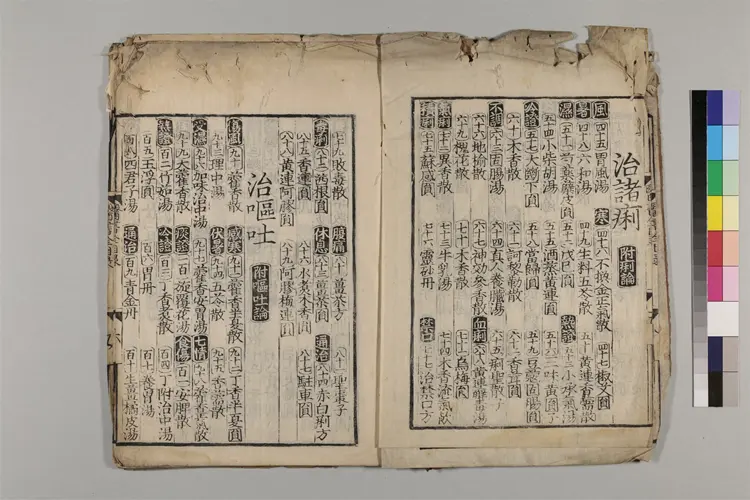 治諸痢 附痢論
風 四十五胃風湯 寒 四十六不換金正氣散 四十七椒艾圓
暑 四十八六和湯 四十九生料五苓散 五十黃連香薷散
濕 五十一 皮圓 五十二戊己圓 熱證 五十三小承氣湯
五十四小柴胡湯 五十五酒蒸黃連圓 五十六三味黃圓子
冷證 五十七大斷下圓 五十八當歸圓 五十九豆蔻固腸圓
六十木香散 六十一訶黎勒散 六十二香茸圓
不調 六十三固腸湯 六十四真人養臟湯 六十五痢聖散子
六十六地榆散 六十七神效參香散 血痢 六十八黃連
六十九槐花散 七十木香散 七十一烏梅圓
氣痢 七十二異香散 七十三牛乳湯 七十四木香流氣飲
積痢 七十五蘇感圓 七十六靈砂丹 禁口 七十七治禁口方
七十九敗毒散 腹痛 八十薑茶方 八十一聖棗子
毒痢 八十二茜根圓 休息 八十三薑茶圓 通治 八十四赤白痢方
八十五香連圓 八十六水煮木香圓 八十七駐車圓
八十八黃連阿膠圓 八十九阿膠梅連圓
治嘔吐 附嘔吐論
傷風 九十藿香散 感寒 九十一藿香半夏散 九十二丁香半夏圓
九十三理中湯 伏暑 九十四五苓散 九十五香薷散
受濕 九十六加味治中湯 九十七藿香安胃湯 七情 九十八 散
九十九大藿香散 痰證 百旋覆花湯 食傷 百一安脾散
熱證 百二竹茹湯 冷證 百三丁香煮散 百四丁附治中湯
百五玉浮圓 百六胃丹 百七養胃湯
百八四君子湯 通治 百九青金丹 百十生薑橘皮湯